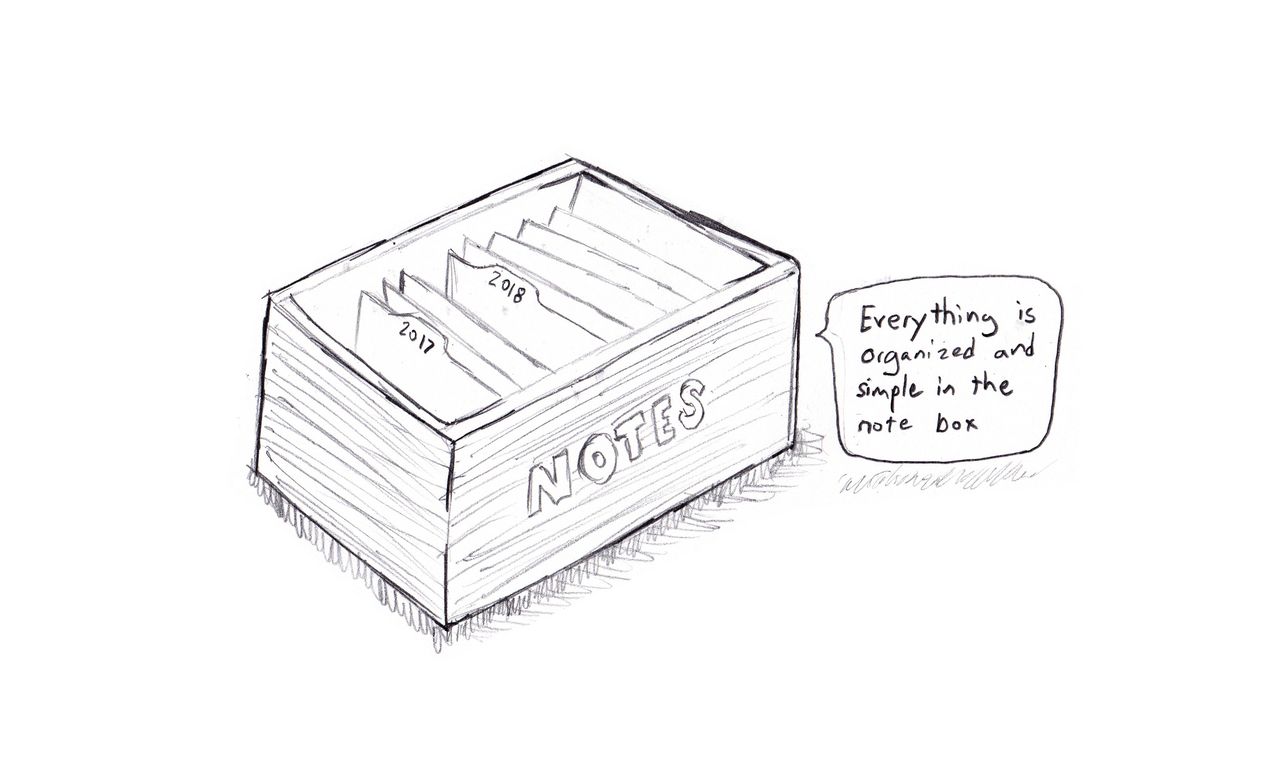 2018
2017
NOTES
Everything is
organized and
simple in the
note box